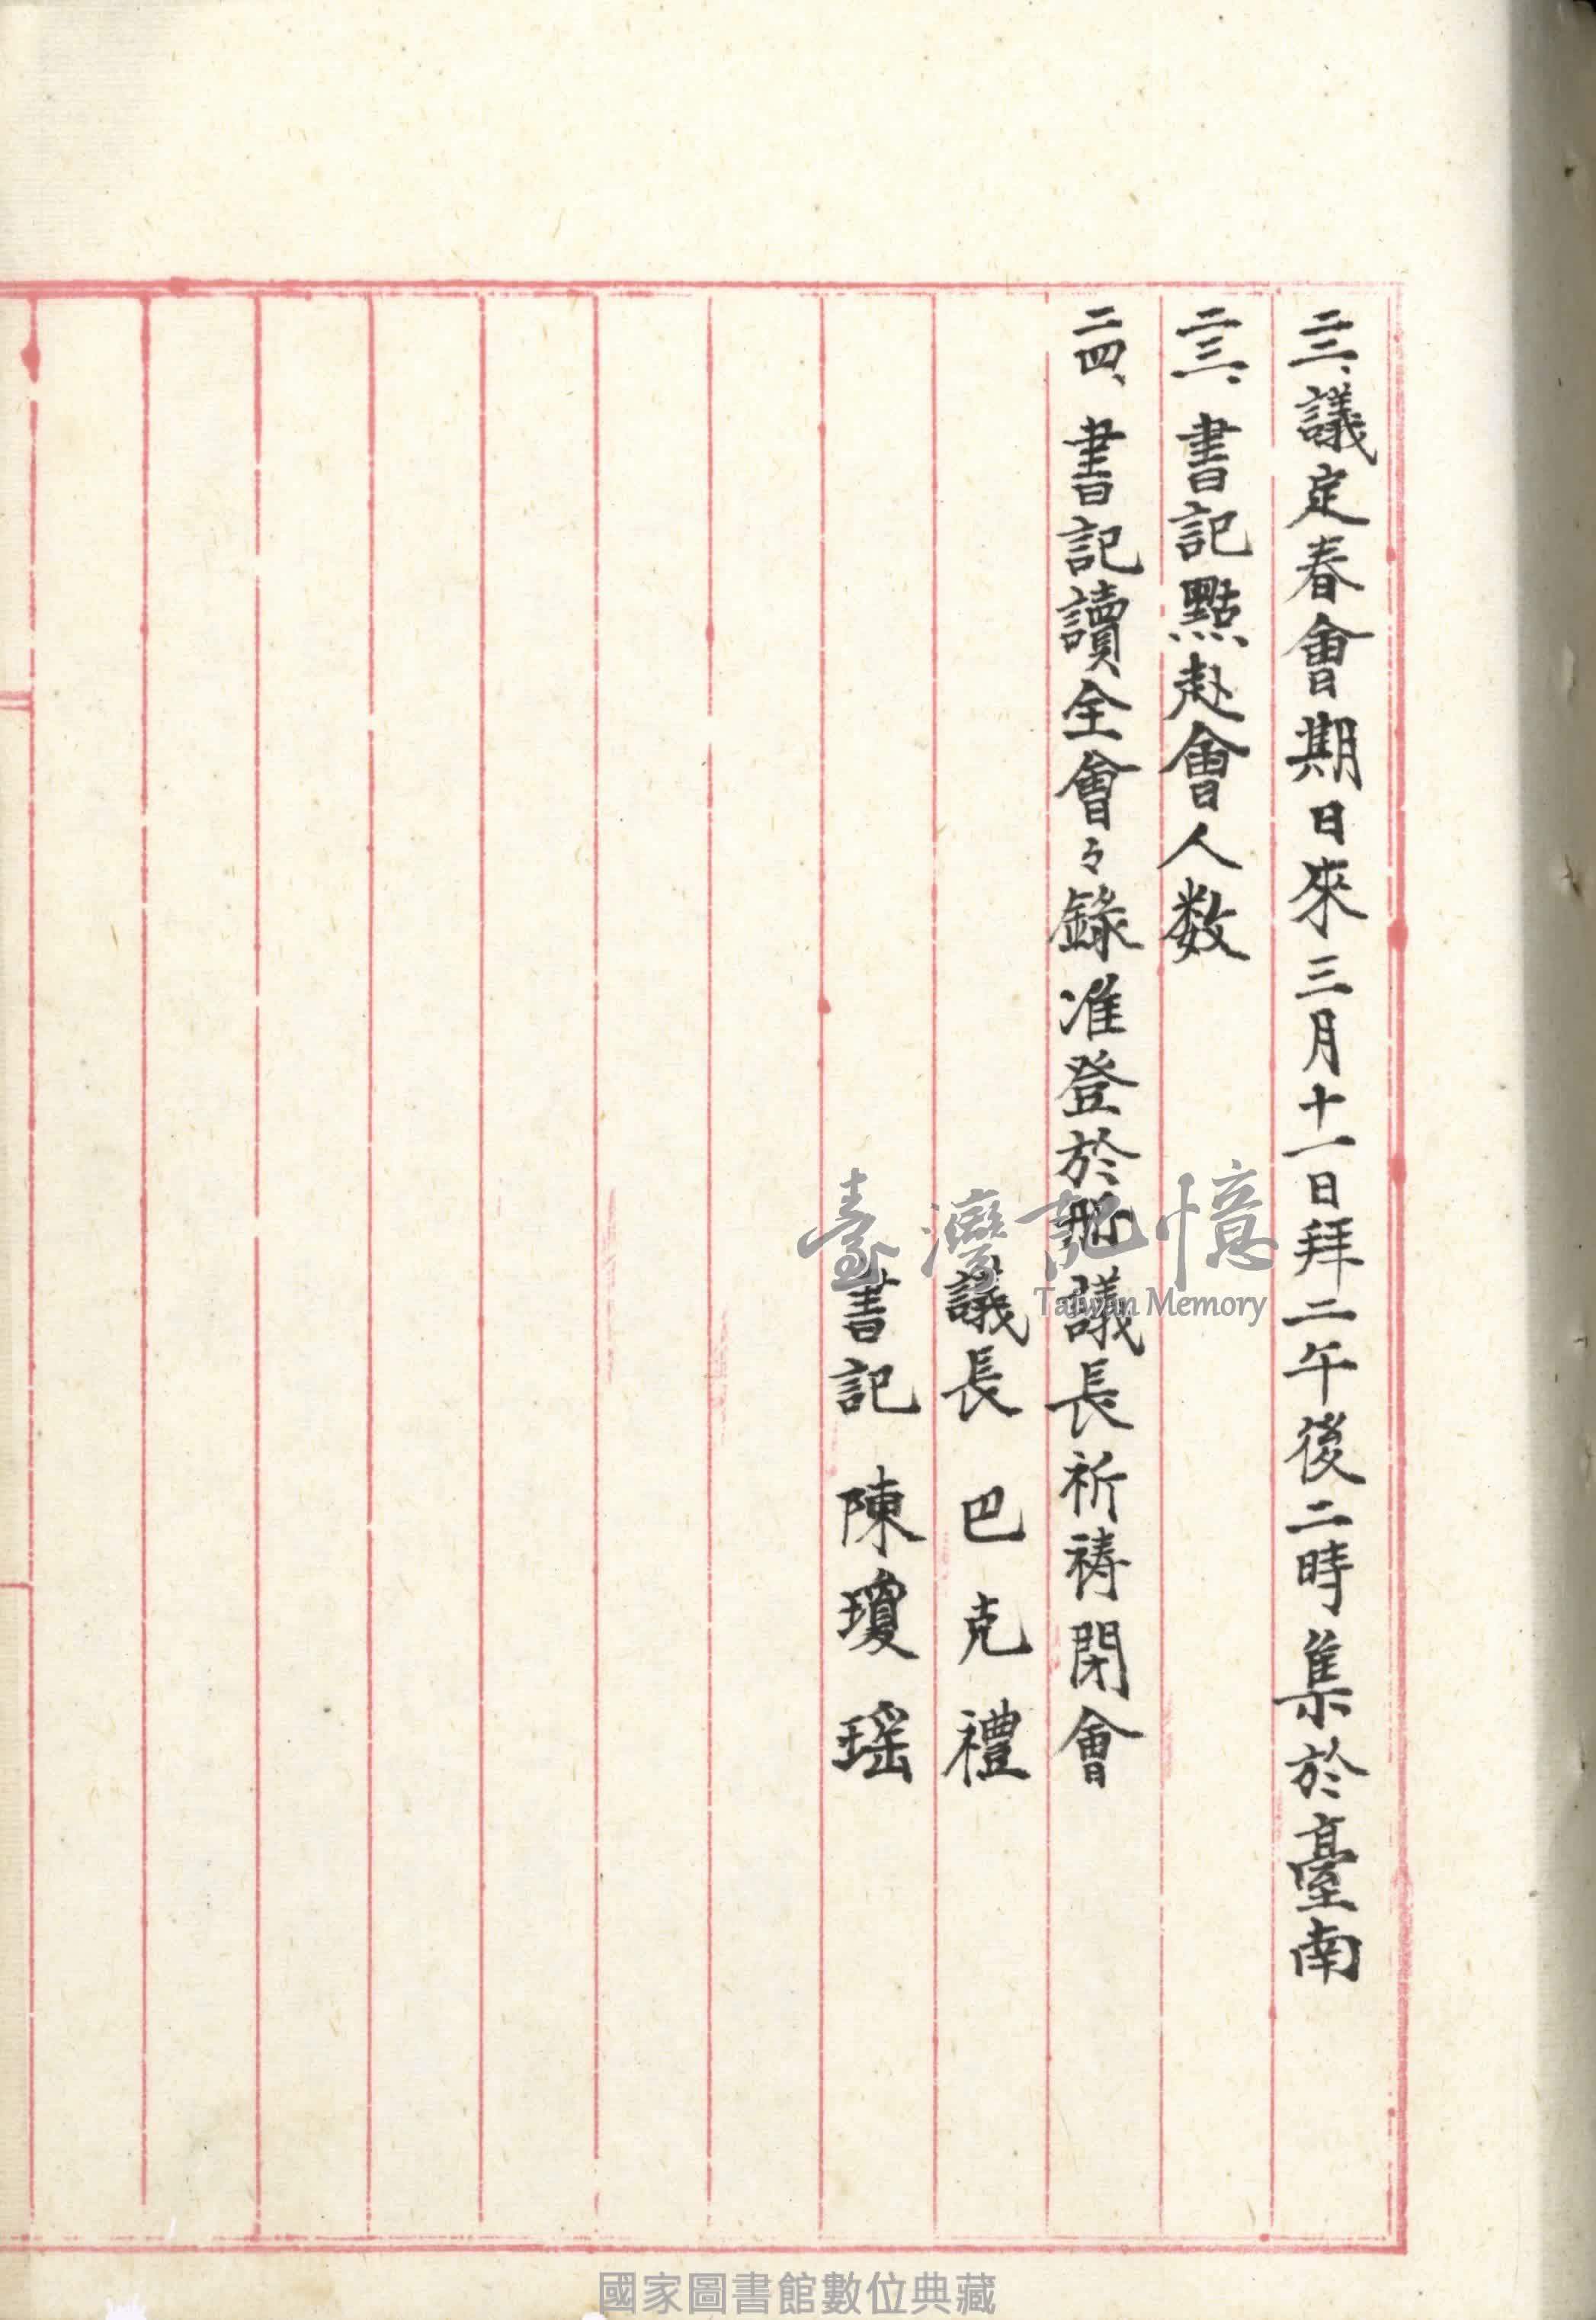 二二、議定春會期日來三月十一日拜二午後二時集於臺南
二三、書記點赴會人数
二四、書記讀全會々錄准登於冊議長祈祷閉會
議長 巴克禮
書記 陳瓊瑶
臺灣記憶
Taiwan Memory
國家圖書館數位典藏